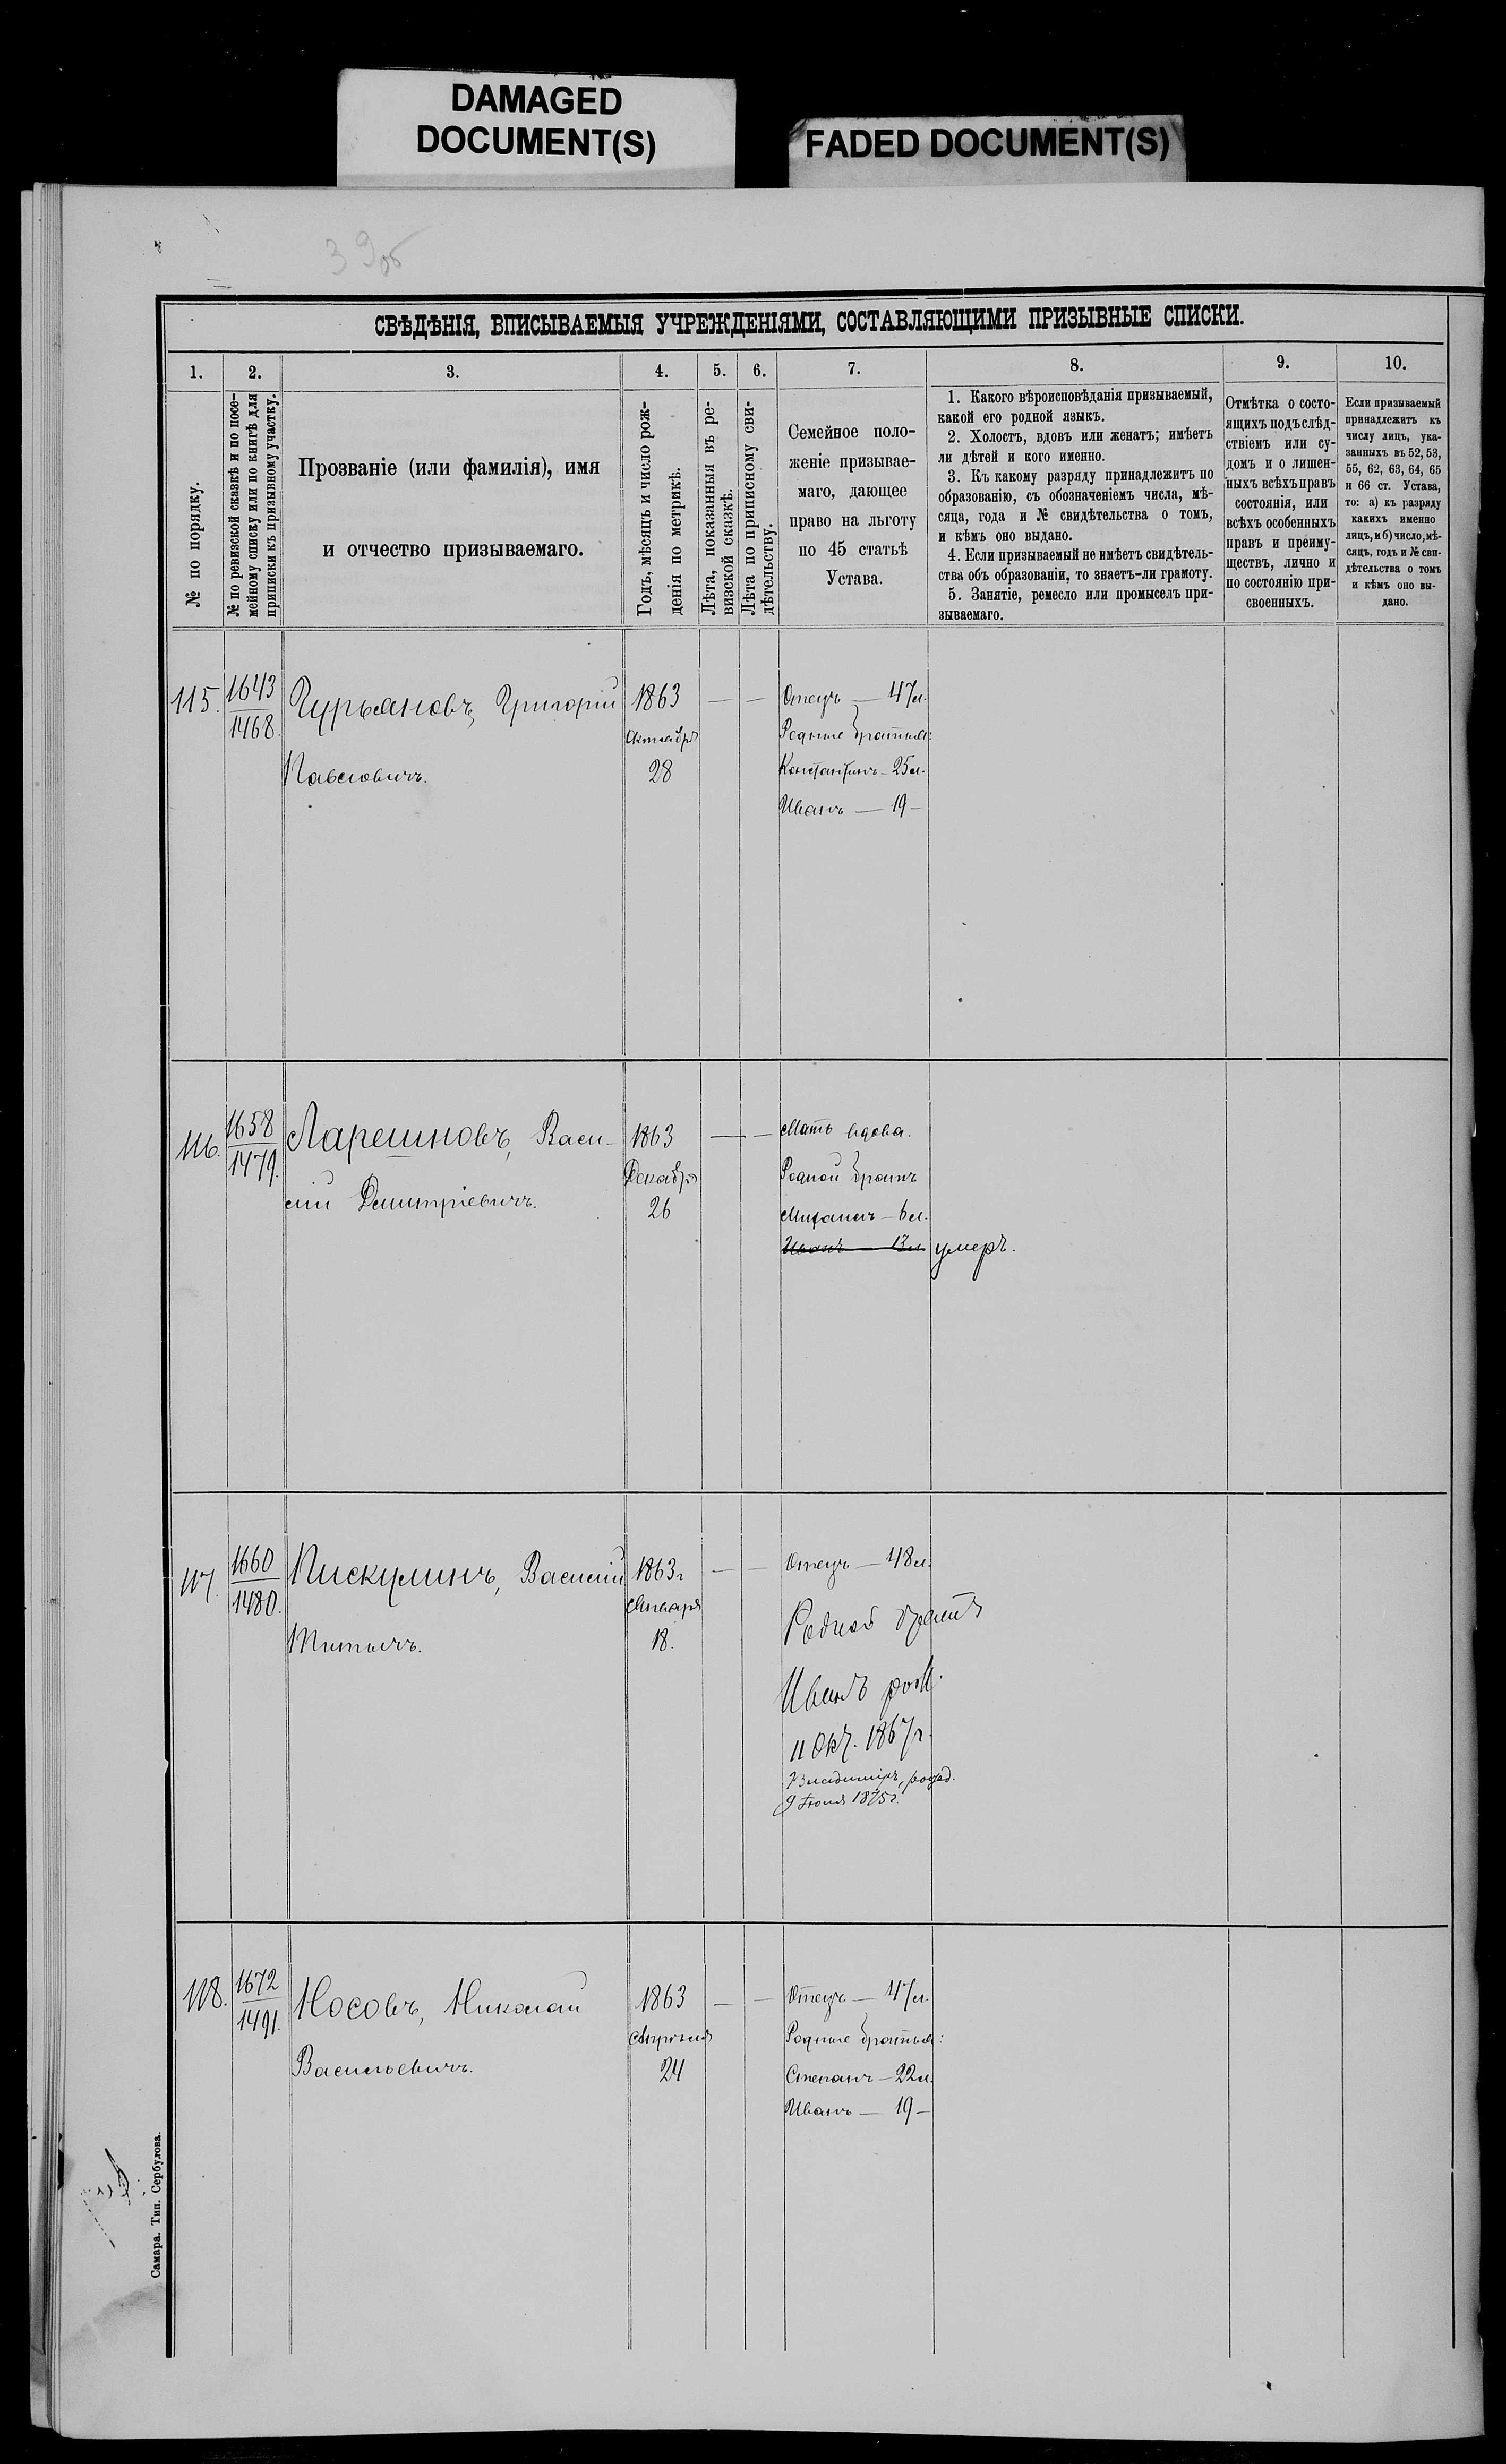 DAMAGED
DOCUMENT(S)
FADED DOCUMENT(S)
39об
СВѢДѢНІЯ, ВПИСЫВАЕМЫЯ УЧРЕЖДЕНІЯМИ, СОСТАВЛЯЮЩИМИ ПРИЗЫВНЫЕ СПИСКИ.
1. 2. 3. 4. 5. 6. 7. 8. 9. 10.
№ по порядку.
№ по ревизской сказкѣ и по посе-
мейному списку или по книгѣ для
приписки къ призывному участку.
Прозваніе (или фамилія), имя
и отчество призываемаго.
Годъ, мѣсяцъ и число рож-
денія по метрикѣ.
Лѣта, показанныя въ ре-
визской сказкѣ.
Лѣта по приписному сви-
дѣтельству.
Семейное поло-
женіе призывае-
маго, дающее
право на льготу
по 45 статьѣ
Устава.
1. Какого вѣроисповѣданія призываемый,
какой его родной языкъ.
2. Холостъ, вдовъ или женатъ; имѣетъ
ли дѣтей и кого именно.
3. Къ какому разряду принадлежитъ по
образованію, съ обозначеніемъ числа, мѣ-
сяца, года и № свидѣтельства о томъ,
и кѣмъ оно выдано.
4. Если призываемый не имѣетъ свидѣтель-
ства объ образованіи, то знаетъ-ли грамоту.
5. Занятіе, ремесло или промыселъ при-
зываемаго.
Отмѣтка о состо-
ящихъ подъ слѣд-
ствіемъ или су-
домъ и о лишен-
ныхъ всѣхъ правъ
состоянія, или
всѣхъ особенныхъ
правъ и преиму-
ществъ, лично и
по состоянію при-
своенныхъ.
Если призываемый
принадлежитъ къ
числу лицъ, ука-
занныхъ въ 52, 53,
55, 62, 63, 64, 65
и 66 ст. Устава,
то: а) къ разряду
какихъ именно
лицъ, и б) число, мѣ-
сяцъ, годъ и № сви-
дѣтельства о томъ
и кѣмъ оно вы-
дано.
115.
1643
1468.
Гурьяновъ, Григорій
Павловичъ.
1863
Октября
28
— —
Отецъ — 47 л.
Родные братья:
Константинъ — 25 л.
Иванъ — 19 —
116.
1658
1479.
Ларешновъ, Васи-
лій Дмитріевичъ.
1863
Декабря
26
— —
Мать вдова.
Родной братъ
Михаилъ — 6 л.
Иванъ — 13 л. умеръ.
117.
1660
1480.
Пискулинъ, Василій
Титычъ.
1863 г
Января
18.
— —
Отецъ — 48 л.
Родной братъ
Иванъ рож.
11 Окт. 1867 г.
Владиміръ, рожд.
9 Іюня 1875 г.
118.
1672
1491.
Носовъ, Николай
Васильевичъ.
1863
Апрѣля
24
— —
Отецъ — 47 л.
Родные братья:
Степанъ — 22 л.
Иванъ — 19 —
Самара. Тип. Сербулова.